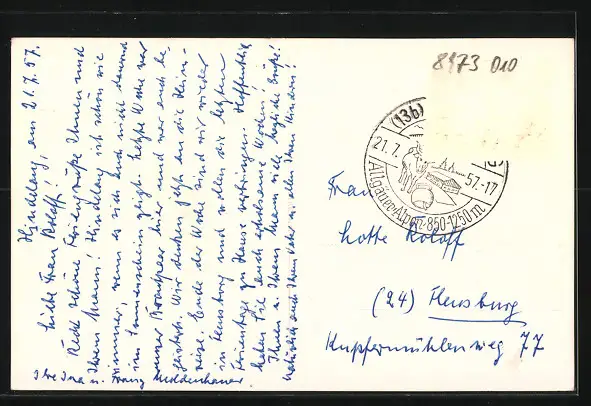 Hindelang, am 21.7.57.
Liebe Frau Roloff!
Recht schöne Feriengrüße Ihnen und
Ihrem Mann! Hindelang ist schön wie
immer, wenn es sich auch nicht dauernd
im Sonnenschein zeigt. Letzte Woche war
unser Brautpaar hier und war auch be-
geistert. Wir denken jetzt an die Heim-
reise. Ende der Woche sind wir wieder
in Flensburg und wollen die letzten
Ferientage zu Hause verbringen. Hoffentlich
haben Sie auch erholsame Wochen!
Ihnen u. Ihrem Mann viele herzliche Grüße!
natürlich auch Ihrem Vater u. allen Ihren Kindern!
Ihre u. Franz Moldenhauer
8473 010
(13b)
21.7. 57.-17
Allgäuer-Alpen-850-1250 m.
Frau
Lotte Roloff
(24) Flensburg
Kupfermühlenweg 77